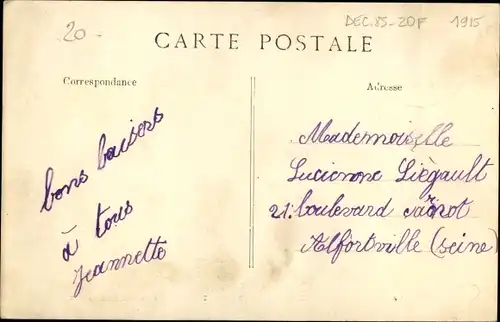 20
DEC.85-20F 1915
CARTE POSTALE
Correspondance
Adresse
bons baisers
à tous
Jeannette
Mademoiselle
Lucienne Liègault
21: boulevard
Alfortville (seine)